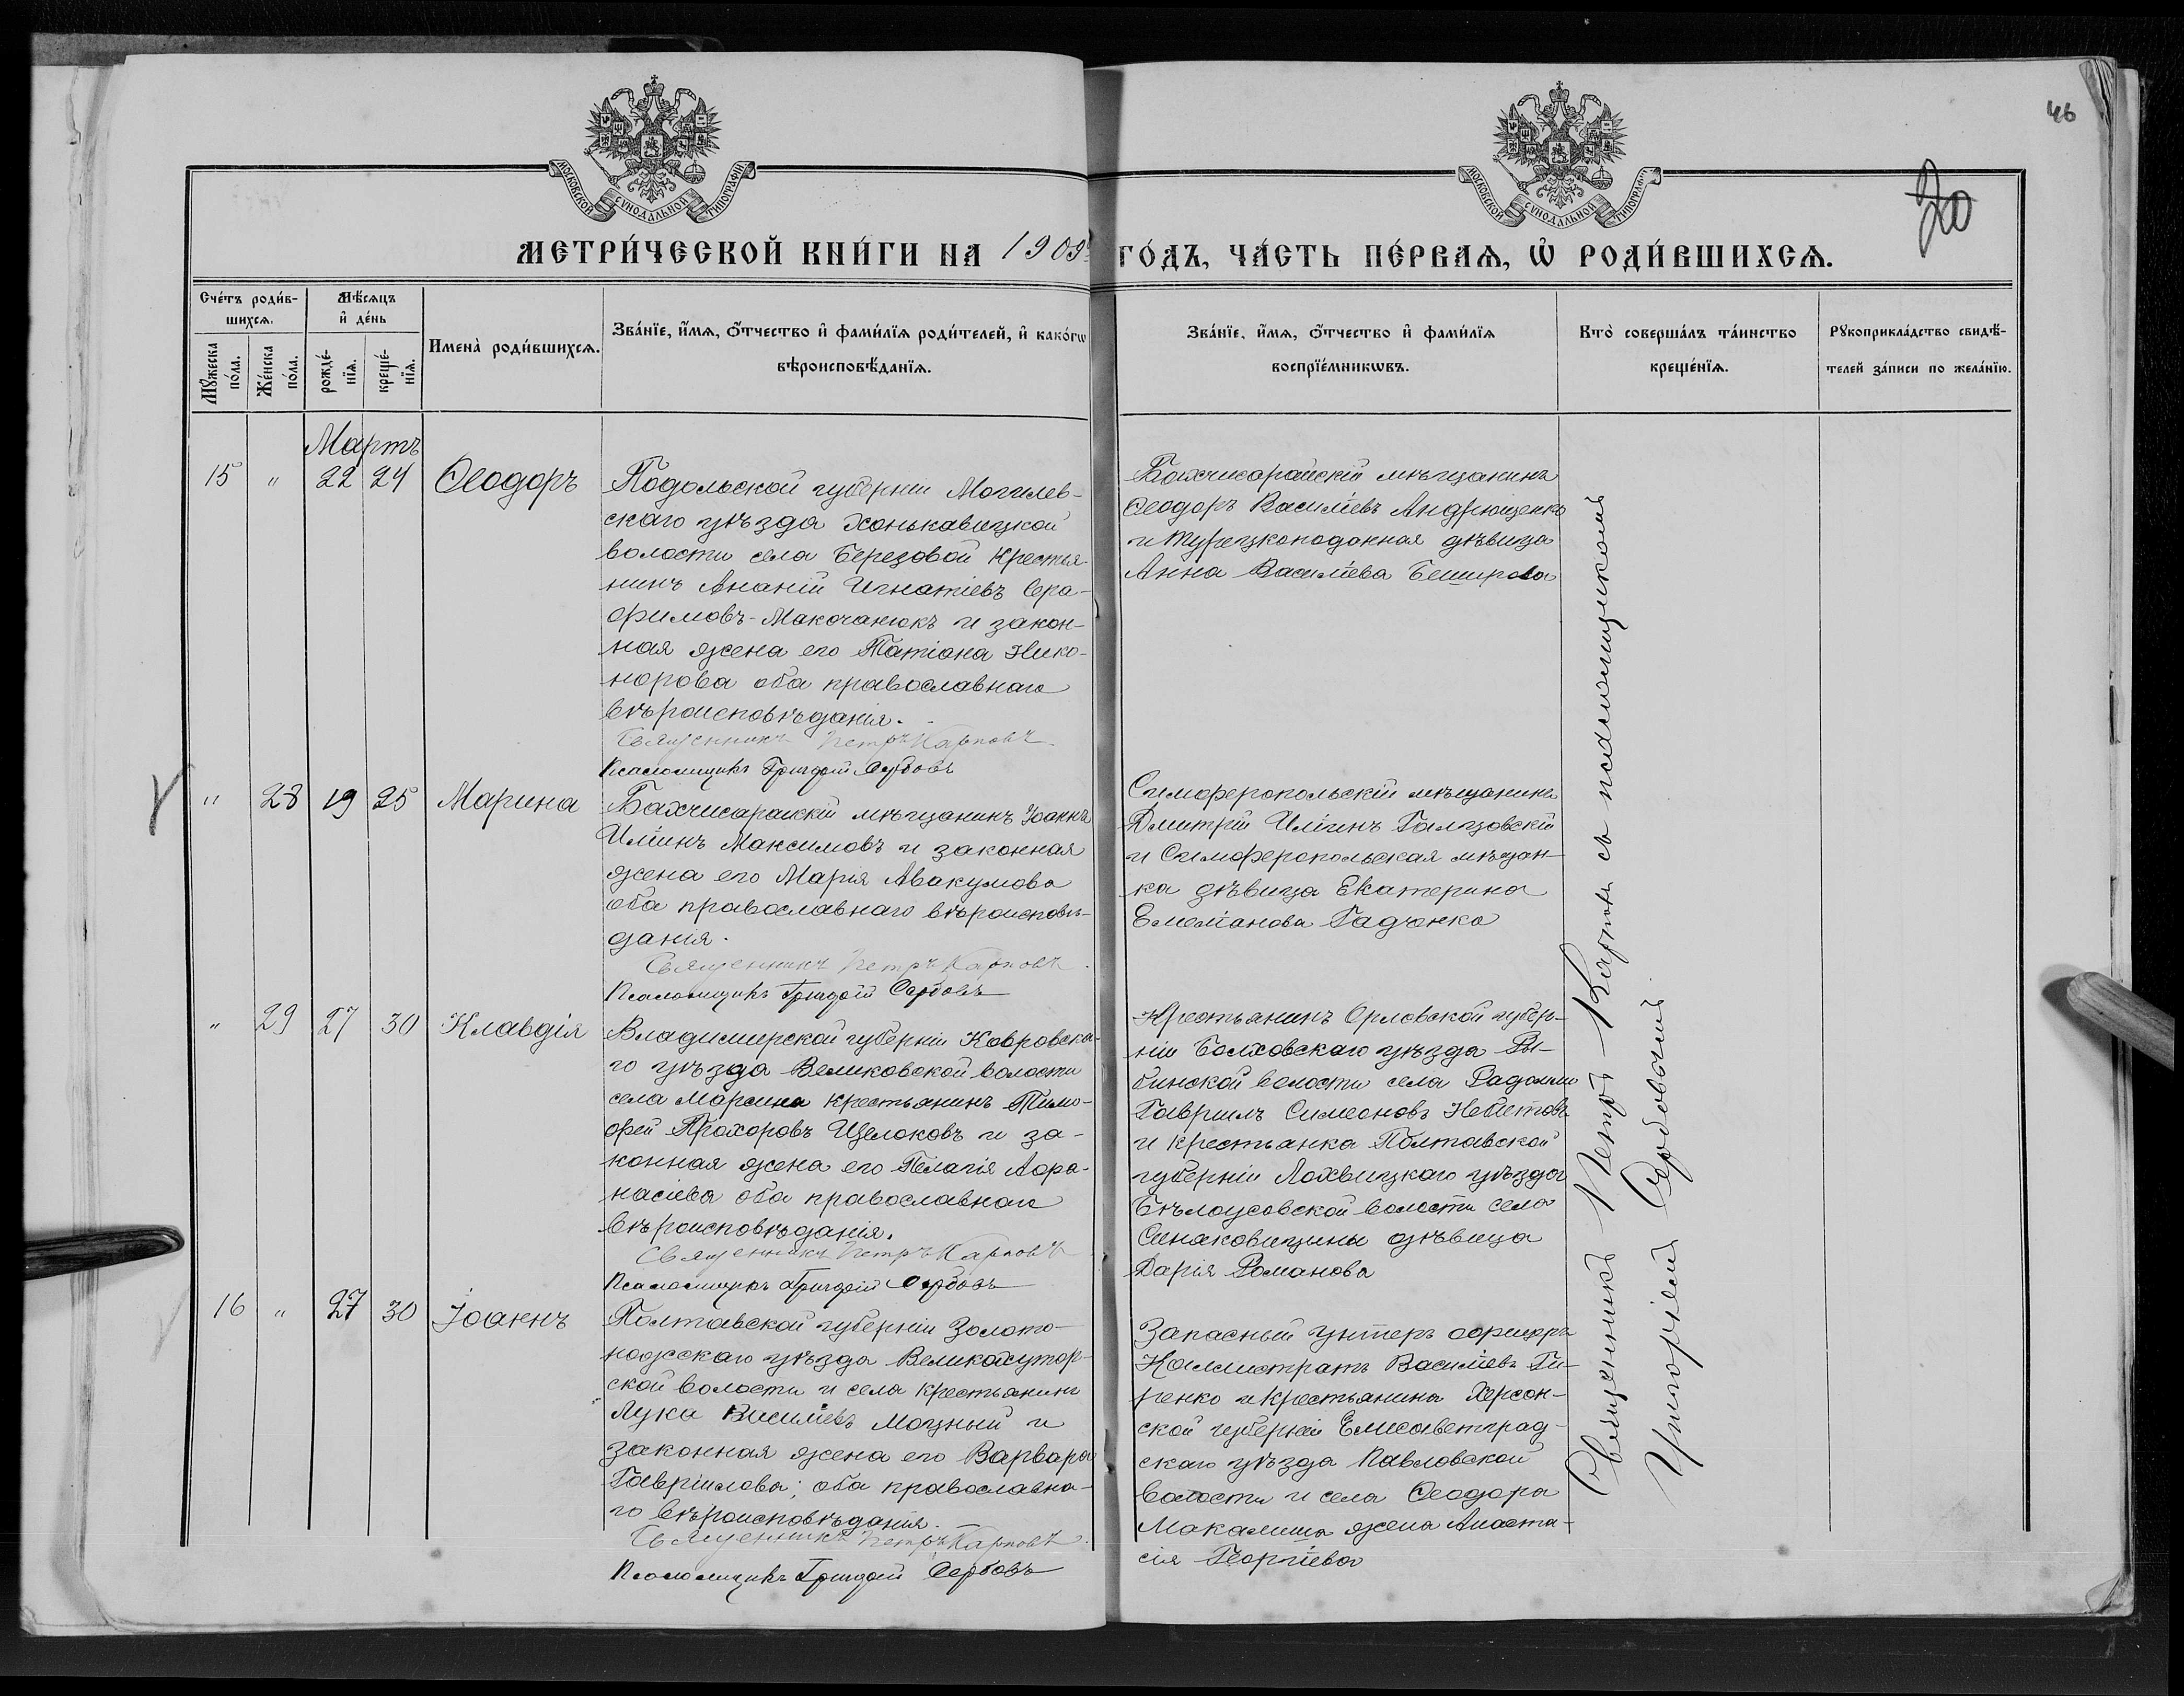 46
20
МОСКОВСКОЙ СѴНОДАЛЬНОЙ ТИПОГРАФІИ
МОСКОВСКОЙ СѴНОДАЛЬНОЙ ТИПОГРАФІИ
МЕТРИ́ЧЕСКОЙ КНИ́ГИ НА 1909 ГО́ДЪ, ЧА́СТЬ ПЕ́РВАѦ, Ѽ РОДИ́ВШИХСѦ.
Сче́тъ роди́в-
шихсѧ.
Мꙋ́жеска по́ла.
Же́нска по́ла.
Мѣ́сѧцъ
и҆ де́нь
рожде́-
нїѧ.
креще́-
нїѧ.
Имена̀ роди́вшихсѧ.
Зва́нїе, и҆́мѧ, ѻ҆́тчество и҆ фами́лїѧ роди́телей, и҆ како́гѡ
вѣроисповѣ́данїѧ.
Зва́нїе, и҆́мѧ, ѻ҆́тчество и҆ фами́лїѧ
воспрїе́мникѡвъ.
Кто̀ соверша́лъ та́инство
креще́нїѧ.
Рꙋкоприкла́дство свидѣ́-
телей за́писи по жела́нїю.
Мартъ
15 " 22 24 Ѳеодоръ
Подольской губерніи Могилев-
скаго уѣзда Хонькавицкой
волости села Березовой крестья-
нинъ Ананій Игнатіевъ Сера-
фимовъ-Макочанюкъ и закон-
ная жена его Татіана Нико-
норова оба православнаго
вѣроисповѣданія.
Священникъ Петръ Карповъ
Псаломщикъ Григорій Сербовъ
Бахчисарайскій мѣщанинъ
Ѳеодоръ Василіевъ Андрющенко
и турецкоподанная дѣвица
Анна Василіева Беширова
" 28 19 25 Марина
Бахчисарайскій мѣщанинъ Іоаннъ
Иліинъ Максимовъ и законная
жена его Марія Авакумова
оба православнаго вѣроисповѣ-
данія.
Священникъ Петръ Карповъ
Псаломщикъ Григорій Сербовъ
Симферопольскій мѣщанинъ
Дмитрій Иліинъ
и Симферопольская мѣщан-
ка дѣвица Екатерина
Емеліанова
" 29 27 30 Клавдія
Владимирской губерніи Ковровска-
го уѣзда Великовской волости
села Марсина крестьянинъ Тимо-
фей Прохоровъ Щелоковъ и за-
конная жена его Пелагія Аѳа-
насіева оба православнаго
вѣроисповѣданія.
Священникъ Петръ Карповъ
Псаломщикъ Григорій Сербовъ
Крестьянинъ Орловской губер-
ніи Болховскаго уѣзда Ры-
бинской волости села
Гавриилъ Симеоновъ
и крестьянка Полтавской
губерніи Лохвицкаго уѣзда
Бѣлоусовской волости села
Синяковщины дѣвица
Дарія Романова
16 " 27 30 Іоаннъ
Полтавской губерніи Золото-
ношскаго уѣзда Великохутор-
ской волости и села крестьянинъ
Лука Василіевъ Моцный и
законная жена его Варвара
Гавріилова; оба православна-
го вѣроисповѣданія.
Священникъ Петръ Карповъ
Псаломщикъ Григорій Сербовъ
Запасный унтеръ офицеръ
Каллистратъ Василіевъ Ги-
ренко и крестьянина Херсон-
ской губерніи Елисаветград-
скаго уѣзда Павловской
волости и села Ѳеодора
жена Анаста-
сія Георгіева
Священникъ Петръ Карповъ съ псаломщикомъ
Григоріемъ Сербовымъ